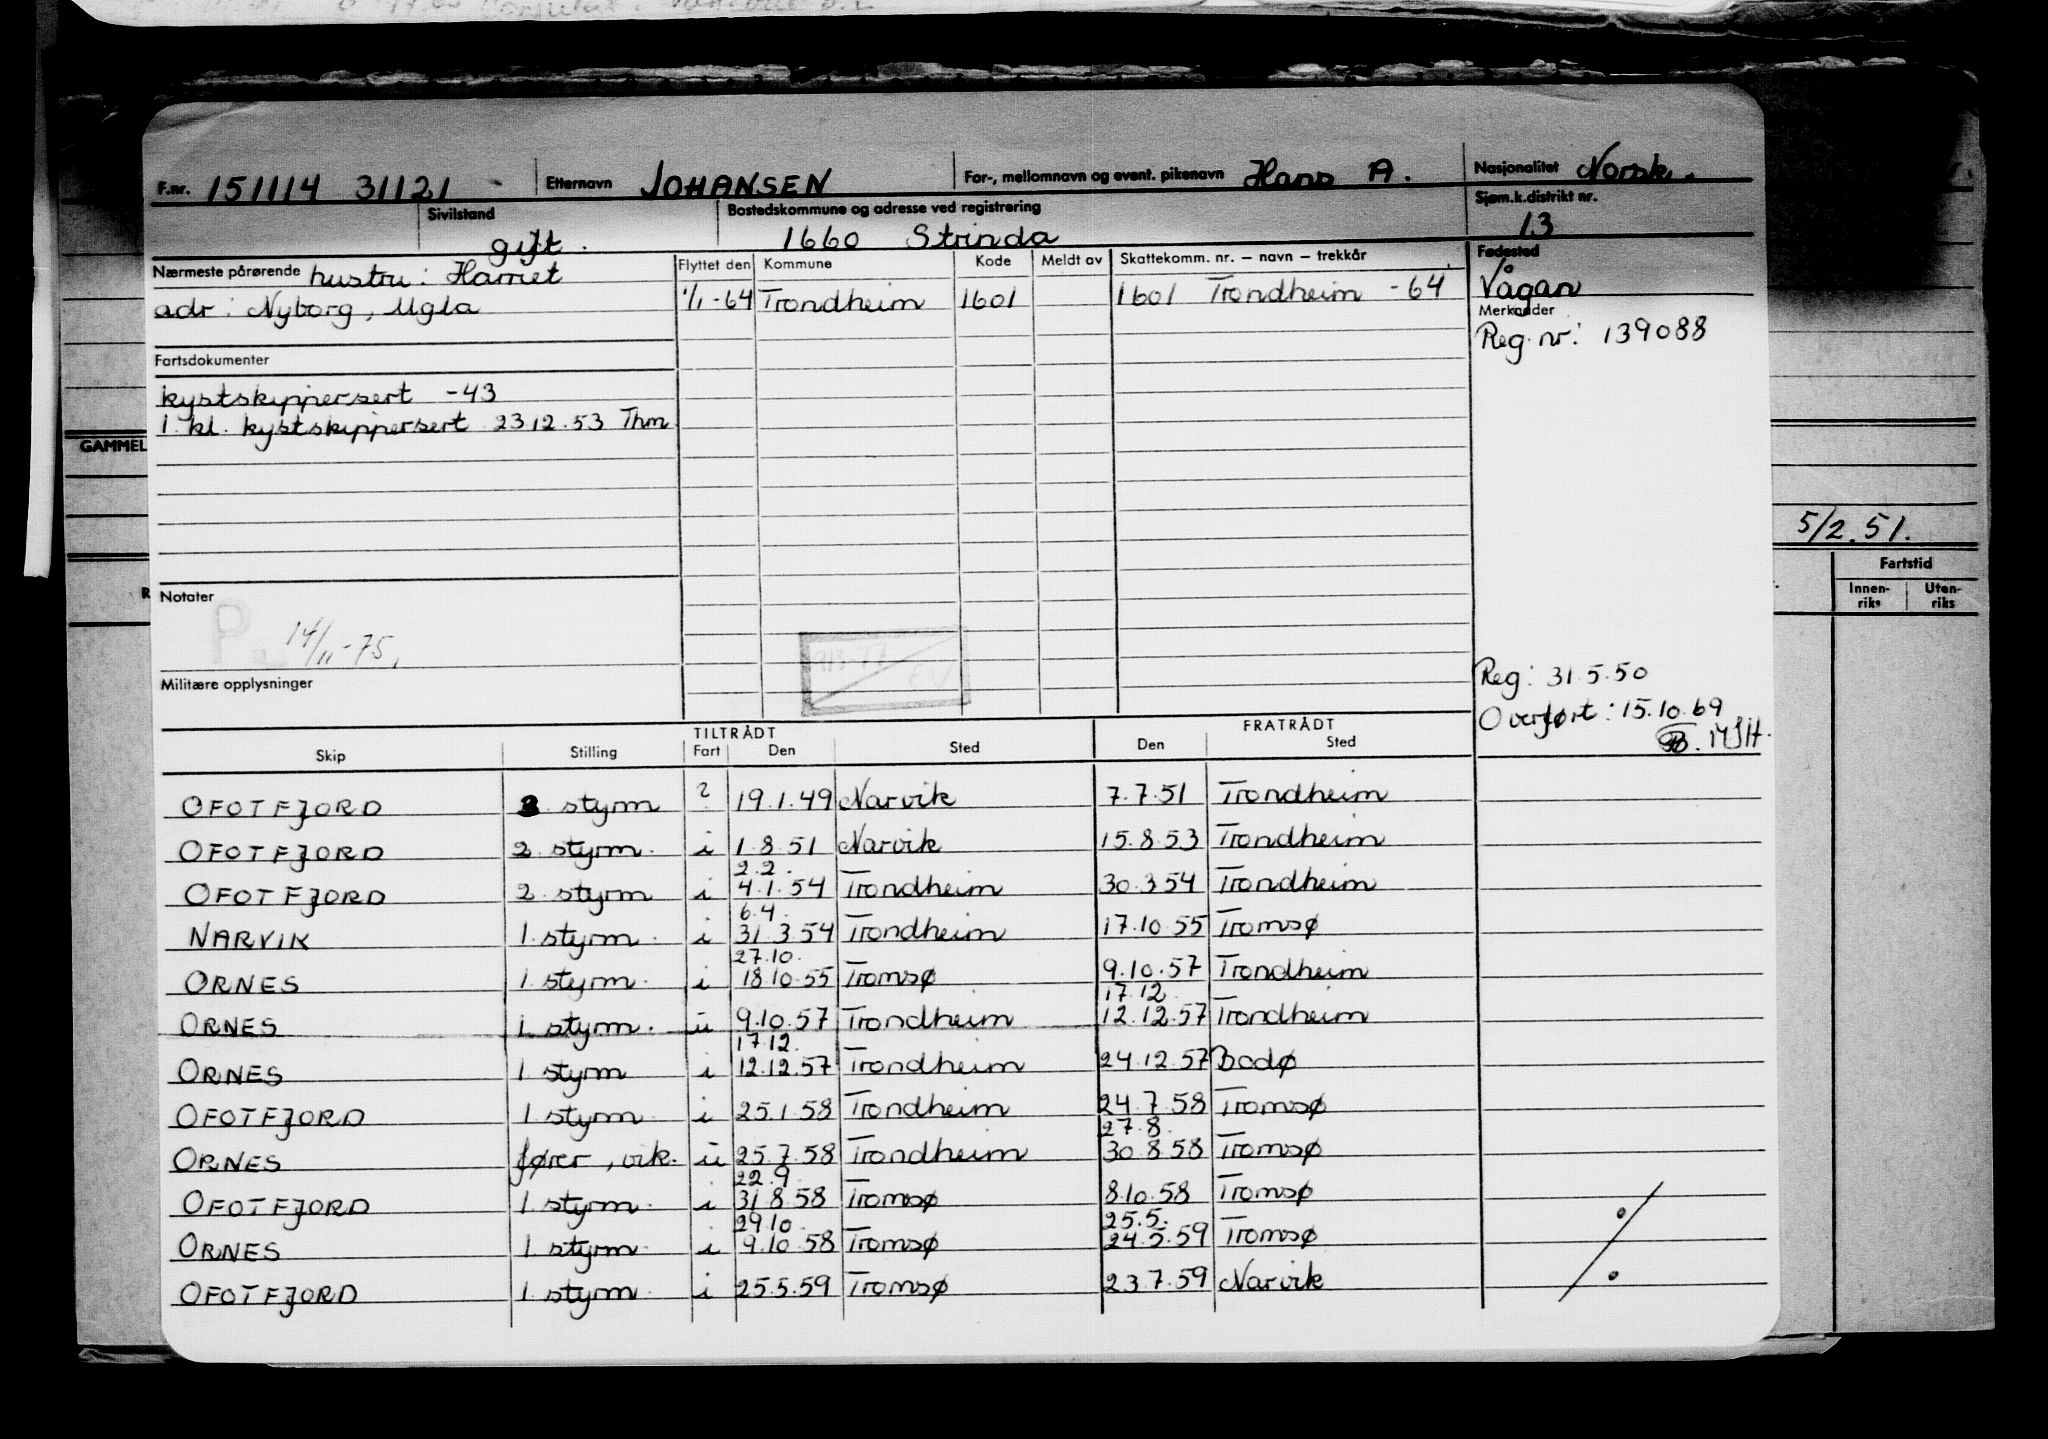 F.nr. 151114 31121 Etternavn JOHANSEN For-, mellomnavn og event. pikenavn Hans A. Nasjonalitet Norsk.
Sivilstand gift. Bostedskommune og adresse ved registrering 1660 Strinda Sjøm.k.distrikt nr. 13
Nærmeste pårørende hustru: Harriet
adr: Nyborg, Ugla
Flyttet den Kommune Kode Meldt av Skattekomm. nr. – navn – trekkår
1/1-64 Trondheim 1601 1601 Trondheim -64
Fødested
Vågan
Merknader
Reg. nr: 139088
Fartsdokumenter
kystskippersert -43
1. kl. kystskippersert 23 12.53 Thm
GAMMEL
5/2.51.
Fartstid
Innen-riks Uten-riks
Notater
14/11-75.
Militære opplysninger
Reg: 31.5.50
Overført: 15.10.69
TILTRÅDT FRATRÅDT
Skip Stilling Fart Den Sted Den Sted
OFOTFJORD 2 styrm ? 19.1.49 Narvik 7.7.51 Trondheim
OFOTFJORD 2 styrm. i 1.8.51 Narvik 15.8.53 Trondheim
2.2.
OFOTFJORD 2 styrm i 4.1.54 Trondheim 30.3 54 Trondheim
6.4.
NARVIK 1. styrm. i 31 3 54 Trondheim 17.10.55 Tromsø
27.10.
ORNES 1. styrm. i 18.10.55 Tromsø 9.10.57 Trondheim
17.12.
ORNES 1. styrm. u 9.10.57 Trondheim 12.12.57 Trondheim
17.12.
ORNES 1 styrm i 12.12.57 Trondheim 24.12.57 Bodø
OFOTFJORD 1 styrm i 25.1.58 Trondheim 24.7.58 Tromsø
27.8.
ORNES fører, vik. u 25.7.58 Trondheim 30 8.58 Tromsø
22.9.
OFOTFJORD 1 styrm. i 31 8.58 Tromsø 8.10.58 Tromsø
29.10. 25.5.
ORNES 1 styrm. i 9.10.58 Tromsø 24.5.59 Tromsø
OFOTFJORD 1 styrm. i 25.5.59 Tromsø 23.7.59 Narvik